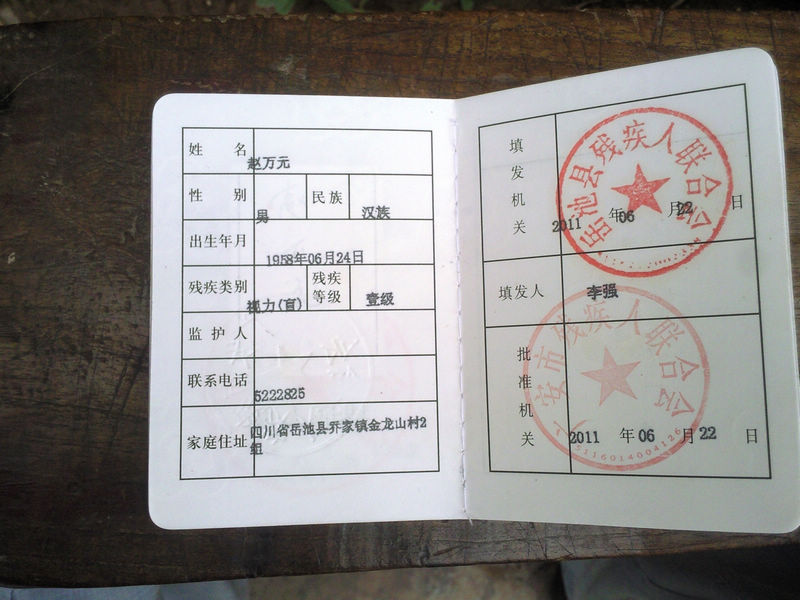 姓 名 赵万元
性 别 男 民族 汉族
出生年月 1958年06月24日
残疾类别 视力(盲) 残疾等级 壹级
监护人
联系电话 5222825
家庭住址 四川省岳池县乔家镇金龙山村2
组
填发机关
岳池县残疾人联合会
2011 年 06 月 22 日
填发人 李强
批准机关
安市残疾人联合会
2011 年 06 月 22 日
5116014004126